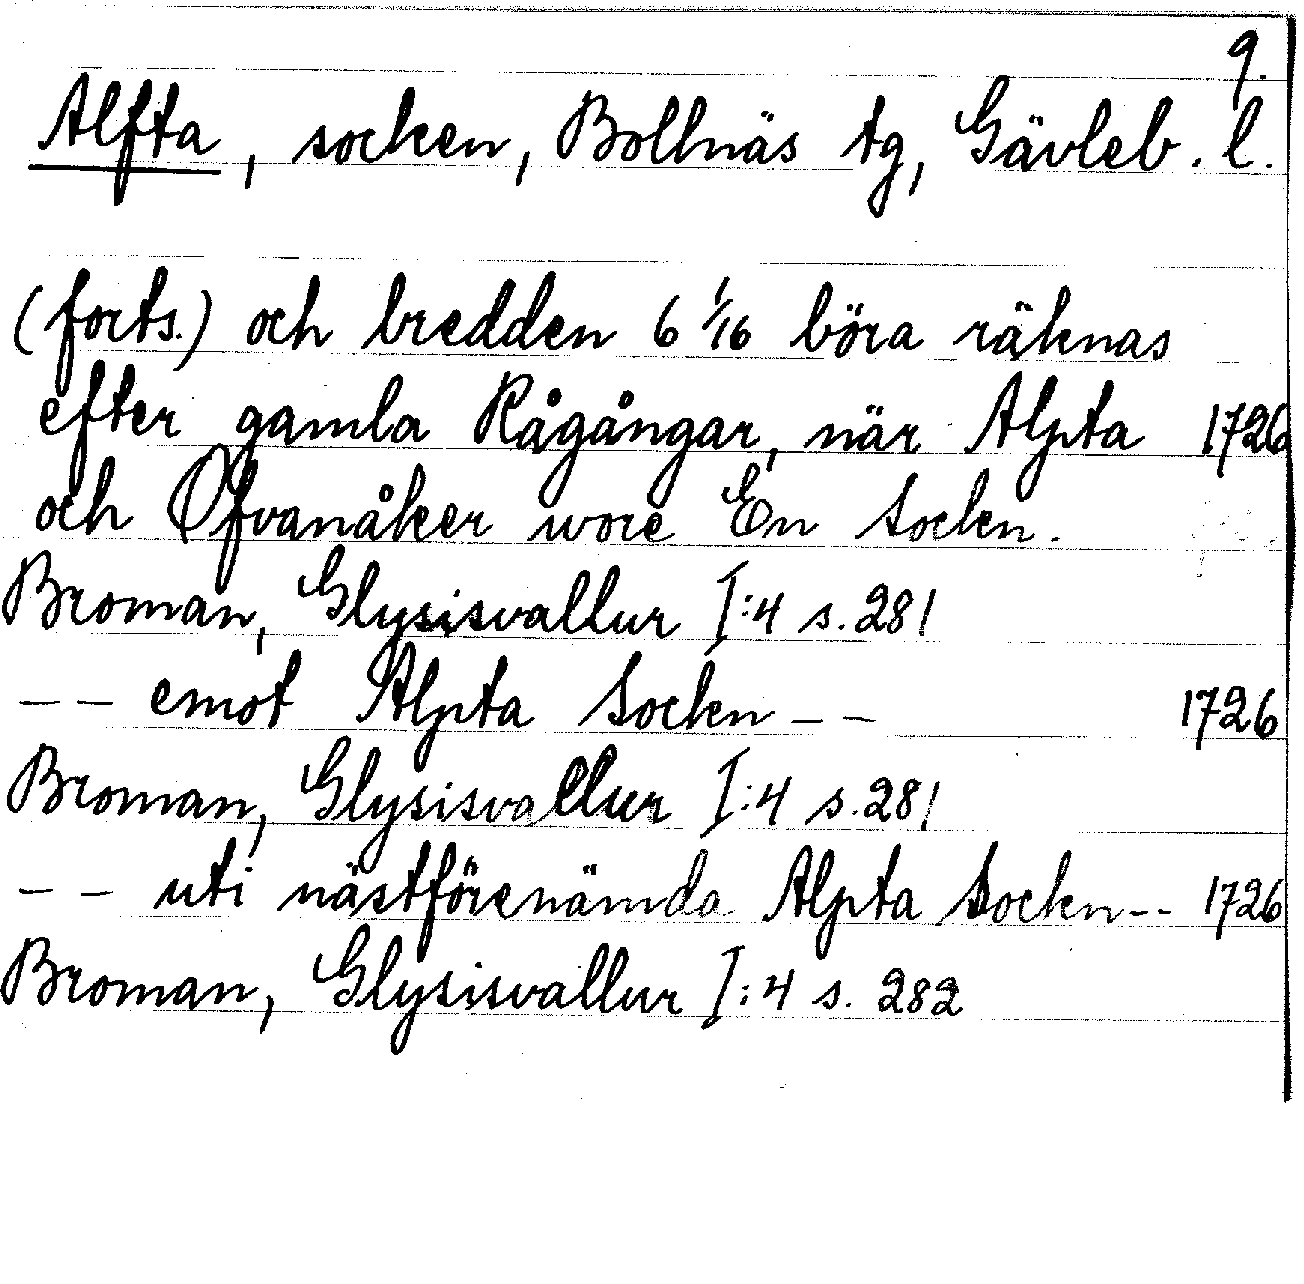 9.
Alfta, socken, Bollnäs tg, Gävleb. l.
(forts.) och bredden 6 1/16 böra räknas
efter gamla Rågångar, när Alpta 1726
och Öfvanåker wore En Socken.
Broman, Glysisvallur I:4 s. 281
-- emot Alpta Socken -- 1726
Broman, Glysisvallur I:4 s. 281
-- uti nästförenämda Alpta Socken -- 1726
Broman, Glysisvallur I:4 s. 282